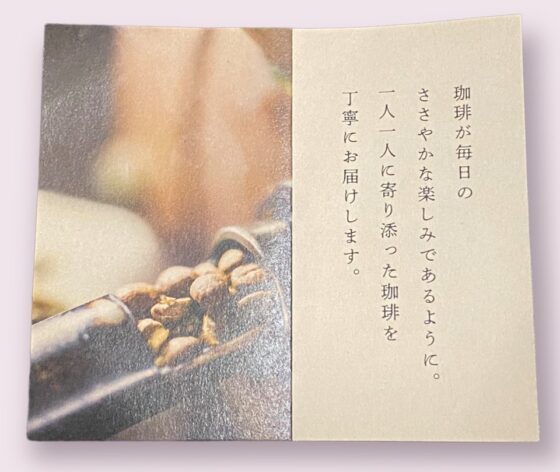 珈琲が毎日の
ささやかな楽しみであるように。
一人一人に寄り添った珈琲を
丁寧にお届けします。